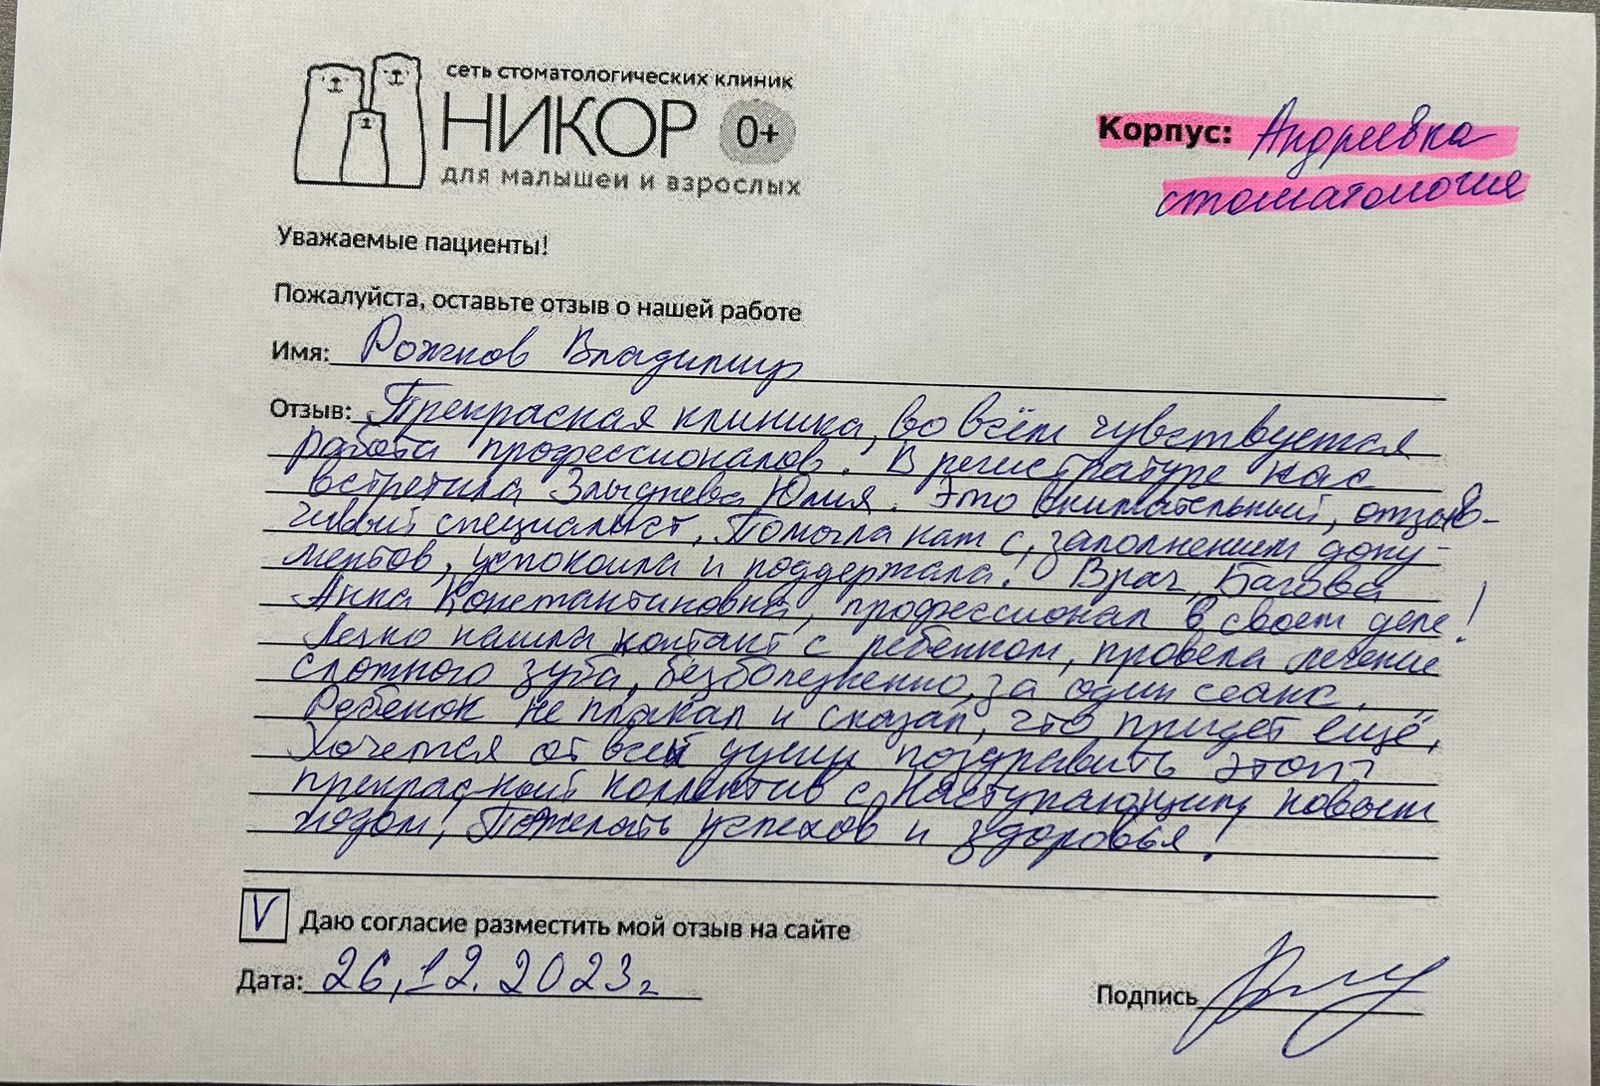 сеть стоматологических клиник
НИКОР 0+
для малышей и взрослых
Корпус: Андреевка
стоматология
Уважаемые пациенты!
Пожалуйста, оставьте отзыв о нашей работе
Имя: Рожнов Владимир
Отзыв: Прекрасная клиника, во всём чувствуется
работа профессионалов. В регистратуре нас
встретила Злыднева Юлия. Это внимательный, отзыв-
чивый специалист. Помогла нам с заполнением доку-
ментов, успокоила и поддержала! Врач, Багова
Анна Константиновна, профессионал в своем деле!
Легко нашла контакт с ребенком, провела лечение
сложного зуба, безболезненно, за один сеанс.
Ребенок не плакал и сказал, что придет ещё.
Хочется от всей души поздравить этот
прекрасный коллектив с Наступающим новым
годом! Пожелать успехов и здоровья!
V Даю согласие разместить мой отзыв на сайте
Дата: 26.12.2023г
Подпись